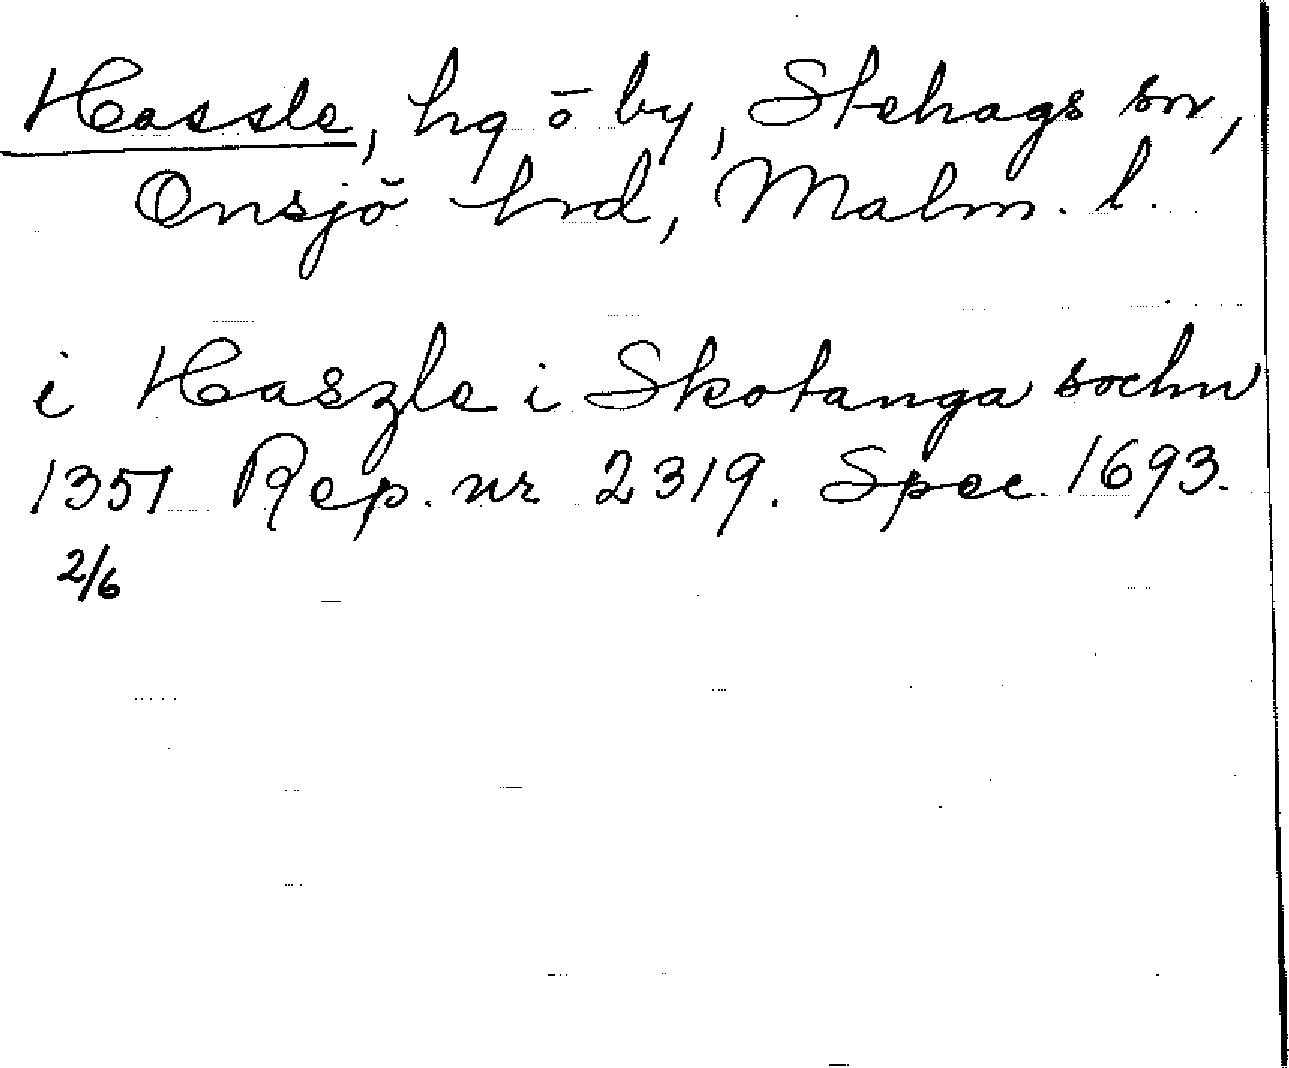 Hassle, hg ō by, Stehags sn,
Onsjö hrd, Malm. l.
i Haszle i Skotanga sochn
1351 Rep. nr 2319. Spec. 1693.
2/6